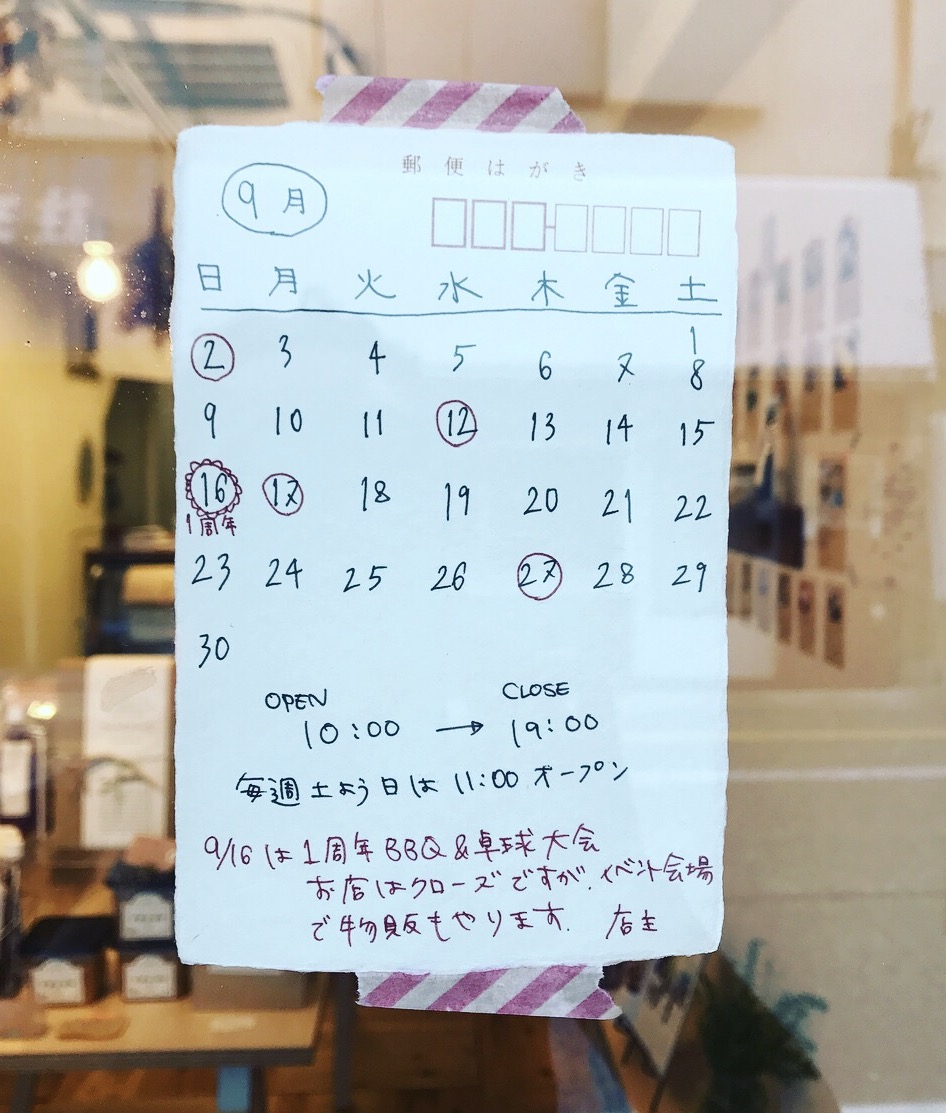 郵便はがき
9月
日 月 火 水 木 金 土
1
2 3 4 5 6 7 8
9 10 11 12 13 14 15
16 17 18 19 20 21 22
1周年
23 24 25 26 27 28 29
30
OPEN CLOSE
10:00 → 19:00
毎週土よう日は 11:00 オープン
9/16は1周年BBQ&卓球大会
お店はクローズですが、イベント会場
で物販もやります. 店主